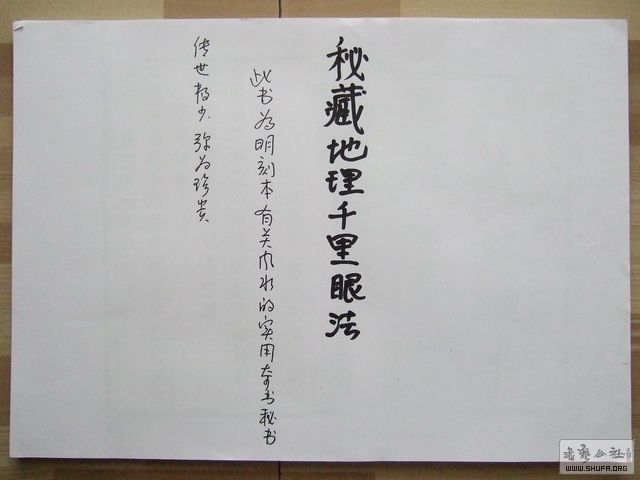 秘藏地理千里眼法
此书为明刻本有关风水的实用奇书秘书
传世极少.弥为珍贵
书艺公社
WWW.SHUFA.ORG